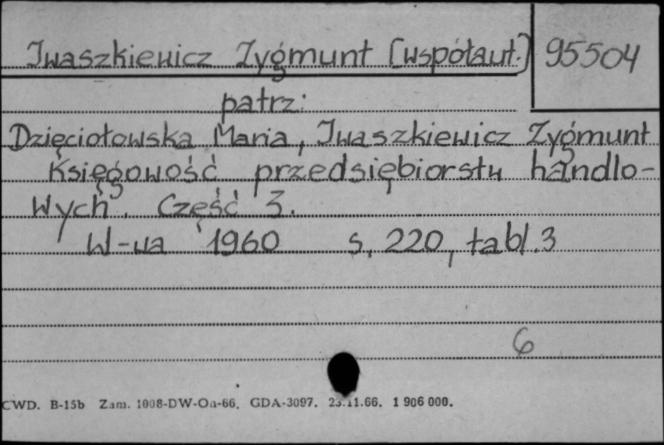 Iwaszkiewicz Zygmunt [współaut.] 95504
patrz:
Dzięciołowska Maria, Iwaszkiewicz Zygmunt
Księgowość przedsiębiorstw handlo-
wych. Część 3.
W-wa 1960 s. 220, tabl. 3
6
CWD. B-15b Zam. 1008-DW-Oa-66. GDA-3097. 23.11.66. 1 906 000.